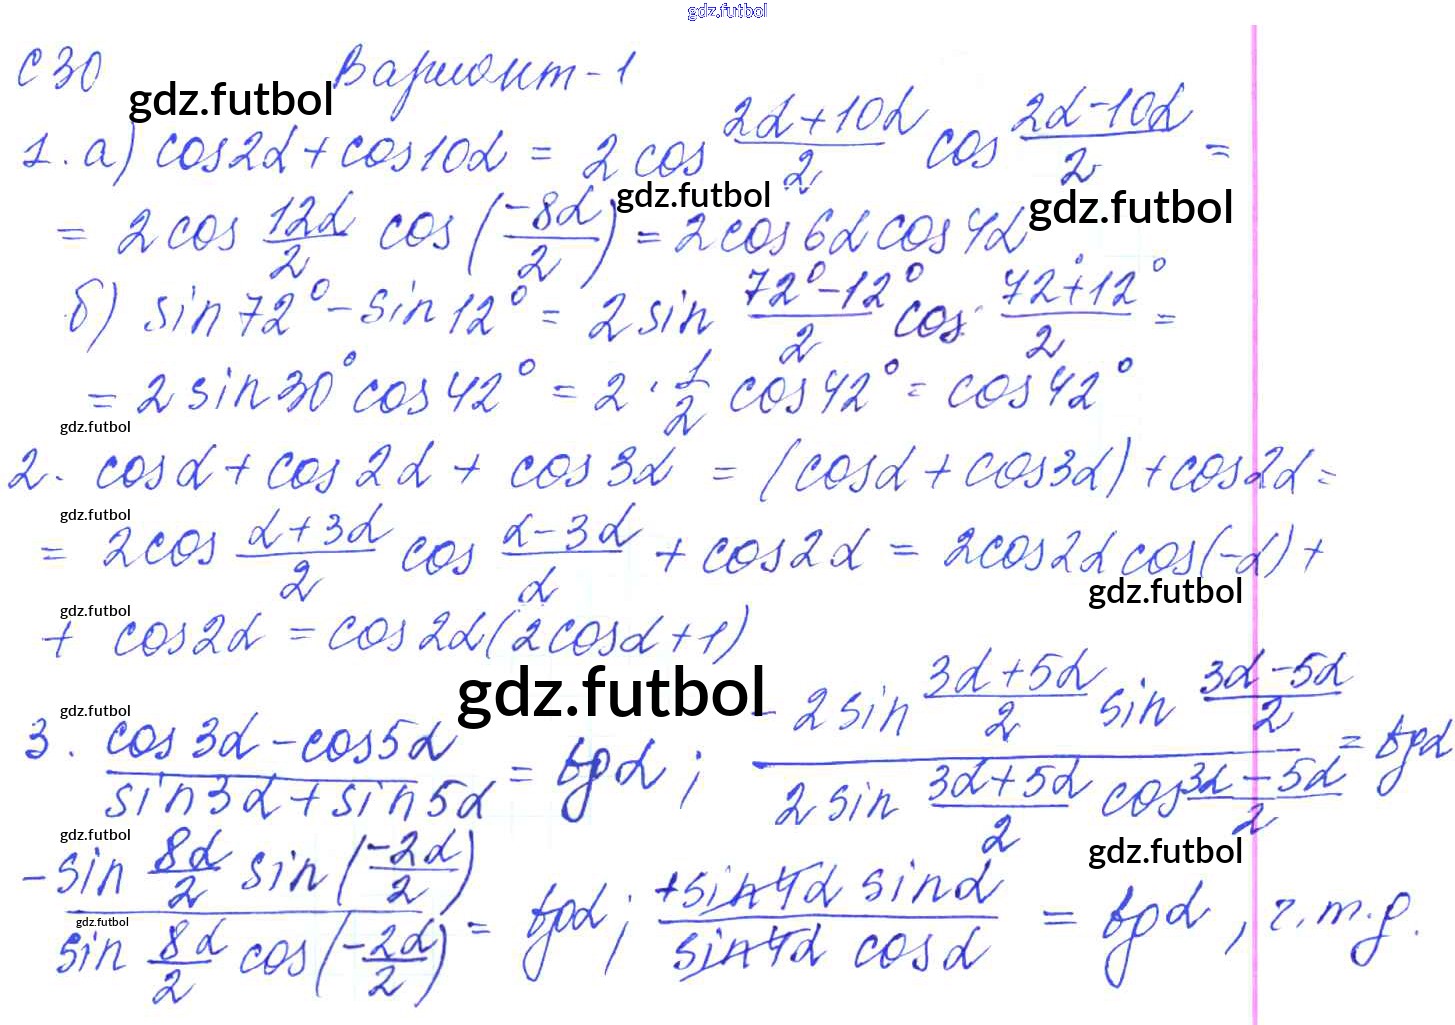 gdz.futbol
С 30 Вариант-1
gdz.futbol
1. а) cos2α + cos10α = 2 cos (2α+10α)/2 cos (2α-10α)/2 =
gdz.futbol
gdz.futbol
= 2 cos 12α/2 cos (-8α/2) = 2 cos 6α cos 4α
б) sin 72° - sin 12° = 2 sin (72°-12°)/2 cos (72°+12°)/2 =
= 2 sin 30° cos 42° = 2 · 1/2 cos 42° = cos 42°
gdz.futbol
2. cos α + cos 2α + cos 3α = (cos α + cos 3α) + cos 2α =
gdz.futbol
= 2 cos (α+3α)/2 cos (α-3α)/α + cos 2α = 2 cos 2α cos(-α) +
gdz.futbol
gdz.futbol
+ cos 2α = cos 2α (2 cos α + 1)
gdz.futbol
gdz.futbol
3. (cos 3α - cos 5α)/(sin 3α + sin 5α) = tg α; (-2 sin (3α+5α)/2 sin (3α-5α)/2)/(2 sin (3α+5α)/2 cos (3α-5α)/2) = tg α
gdz.futbol
gdz.futbol
(-sin 8α/2 sin (-2α/2))/(sin 8α/2 cos (-2α/2)) = tg α; (+sin 4α sin α)/(sin 4α cos α) = tg α, ч.т.д.
gdz.futbol